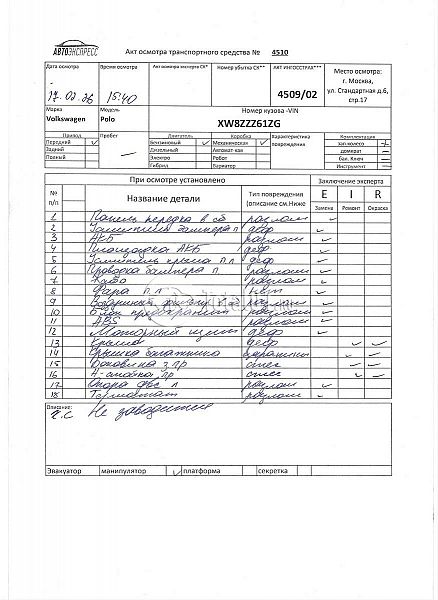 АВТОЭКСПРЕСС
Акт осмотра транспортного средства № 4510
Дата осмотра Время осмотра Акт осмотра эксперта СК* Номер убытка СК** АКТ ИНГОССТРАХ*** Место осмотра:
г. Москва,
ул. Стандартная д.6,
стр.17
15:40 4509/02
Марка Модель Номер кузова -VIN
Volkswagen Polo XW8ZZZ61ZG
Привод Пробег Двигатель Коробка Характеристика повреждения Комплектация
Передний Бензиновый Механическая зап.колесо
Задний Дизельный Автомат-кая домкрат
Полный Электро Робот бал. Ключ
Гибрид Вариатор Инструмент
При осмотре установлено Заключение эксперта
№ п/п Название детали Тип повреждения (описание см.Ниже E I R
Замена Ремонт Окраска
1 Панель передка в сб разлом
2 бампера п деф
3 АКБ разлом
4 Площадка АКБ деф
5 крыла п.л деф
6 Проводка бампера п. разлом
7 разлом
8 Фара п.л нет
9 разлом
10 Блок предохранит разлом
11 ABS разлом
12 Моторный щит деф
13 Крыша деф
14 Крышка багажника
15 Боковина з.пр
16 А-стойка пр
17 Опора двс л разлом
18 Термостат разлом
Описание:
Не заводится
Эвакуатор манипулятор платформа секретка